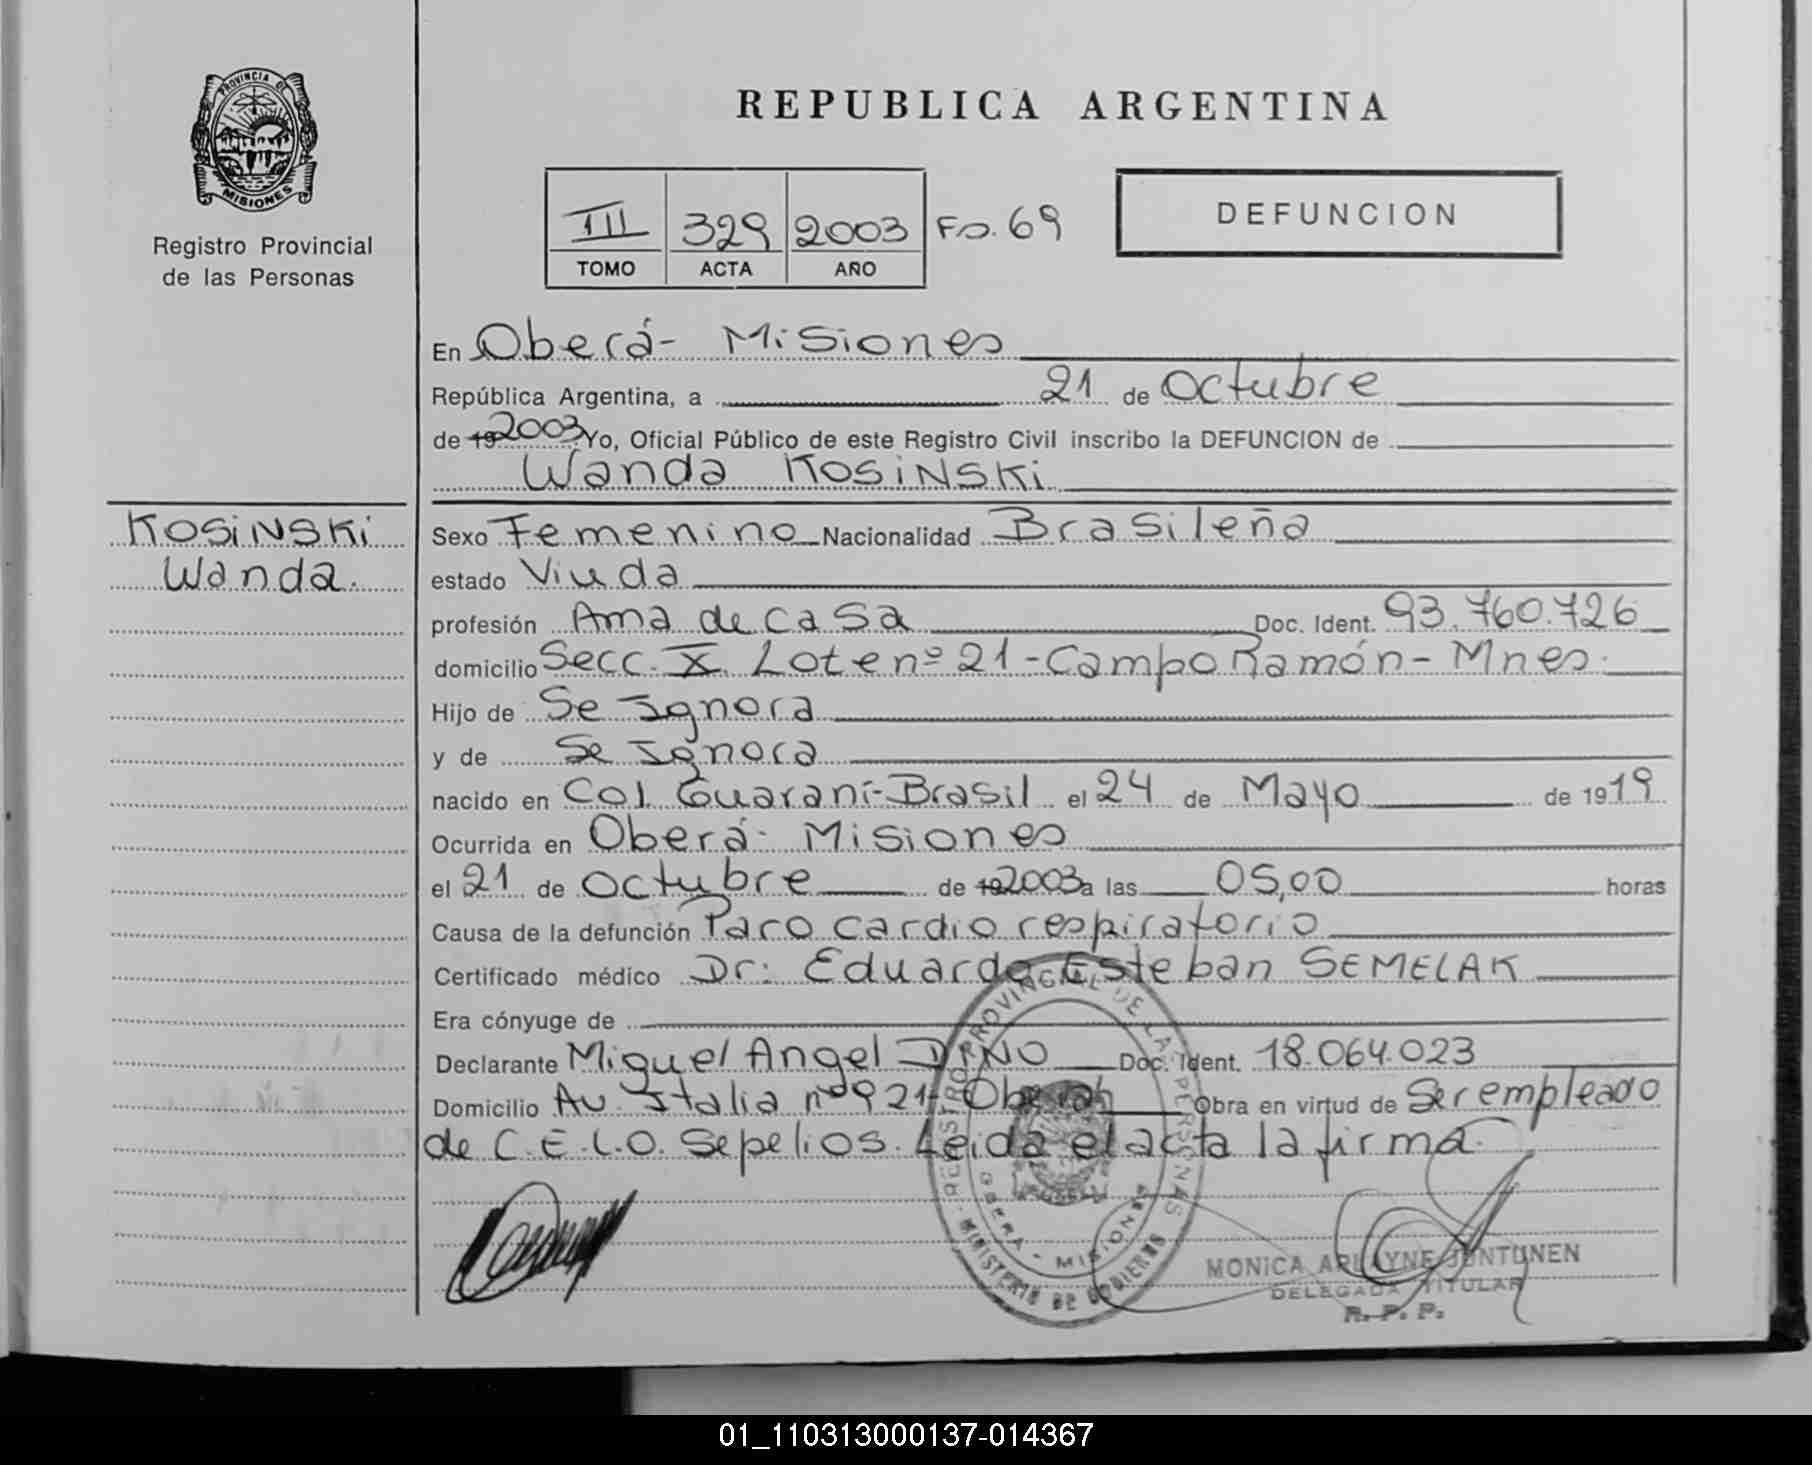 PROVINCIA DE
MISIONES
Registro Provincial
de las Personas
REPUBLICA ARGENTINA
III 329 2003 Fo. 69
TOMO ACTA AÑO
DEFUNCION
En Oberá- Misiones
República Argentina, a 21 de Octubre
de 19 2003 Yo, Oficial Público de este Registro Civil inscribo la DEFUNCION de
Wanda KOSiNSKi
KOSiNSKi
Wanda.
Sexo Femenino Nacionalidad Brasileña
estado Viuda
profesión Ama de casa Doc. Ident. 93.760.726
domicilio Secc. X. Lote nº 21 - Campo Ramón - Mnes.
Hijo de Se Ignora
y de Se Ignora
nacido en Col. Guaraní-Brasil el 24 de Mayo de 1919
Ocurrida en Oberá- Misiones
el 21 de octubre de 19 2003 a las 05,00 horas
Causa de la defunción Paro cardio respiratorio
Certificado médico Dr: Eduardo Esteban SEMELAK
Era cónyuge de
Declarante Miguel Angel DINO Doc. Ident. 18.064.023
Domicilio Av. Italia nº 921- Oberá Obra en virtud de Ser empleado
de C.E.L.O. Sepelios. Leida el acta la firma.
REGISTRO PROVINCIAL DE LAS PERSONAS
OBERA - MISIONES
MINISTERIO DE GOBIERNO
MONICA ARLAYNE JUNTUNEN
DELEGADA TITULAR
R. P. P.
01_110313000137-014367